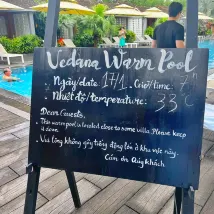 Vedana Warm Pool
• Ngày/date: 17/1. Giờ/time: 7h
• Nhiệt độ/temperature: 33°C
Dear Guests,
This warm pool is located close to some villa. Please keep
it down.
Vui lòng không gây tiếng động lớn ở khu vực này.
Cám ơn Quý khách.